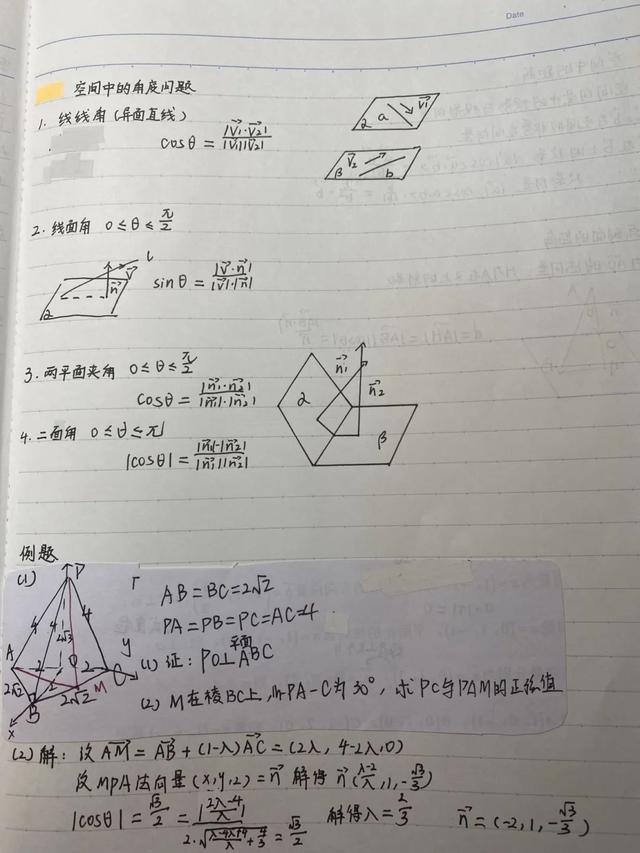 Date
空间中的角度问题
1. 线线角(异面直线)
cosθ = |v₁·v₂| / |v₁||v₂|
α a v₁
β v₂ b
2. 线面角 0≤θ≤π/2
l v n α
sinθ = |v·n| / |v|·|n|
3. 两平面夹角 0≤θ≤π/2
cosθ = |n₁·n₂| / |n₁|·|n₂|
α n₁ n₂ β
4. 二面角 0≤θ≤π
|cosθ| = |n₁·n₂| / |n₁||n₂|
例题
(1)
P
4 4 4 2√3
A 2 O 2 C y
2√2 2 M
B 2√2
x
AB=BC=2√2
PA=PB=PC=AC=4
(1) 证: PO⊥平面ABC
(2) M在棱BC上, M-PA-C为30°, 求PC与PAM的正弦值
(2) 解: 设AM = AB + (1-λ)AC = (2λ, 4-2λ, 0)
设MPA法向量(x,y,z)=n 解得 n(λ-2/λ, 1, -√3/3)
|cosθ| = √3/2 = |2λ-4/λ| / 2·√(λ-4λ+4/λ + 4/3) = √3/2 解得λ=2/3 n=(-2, 1, -√3/3)